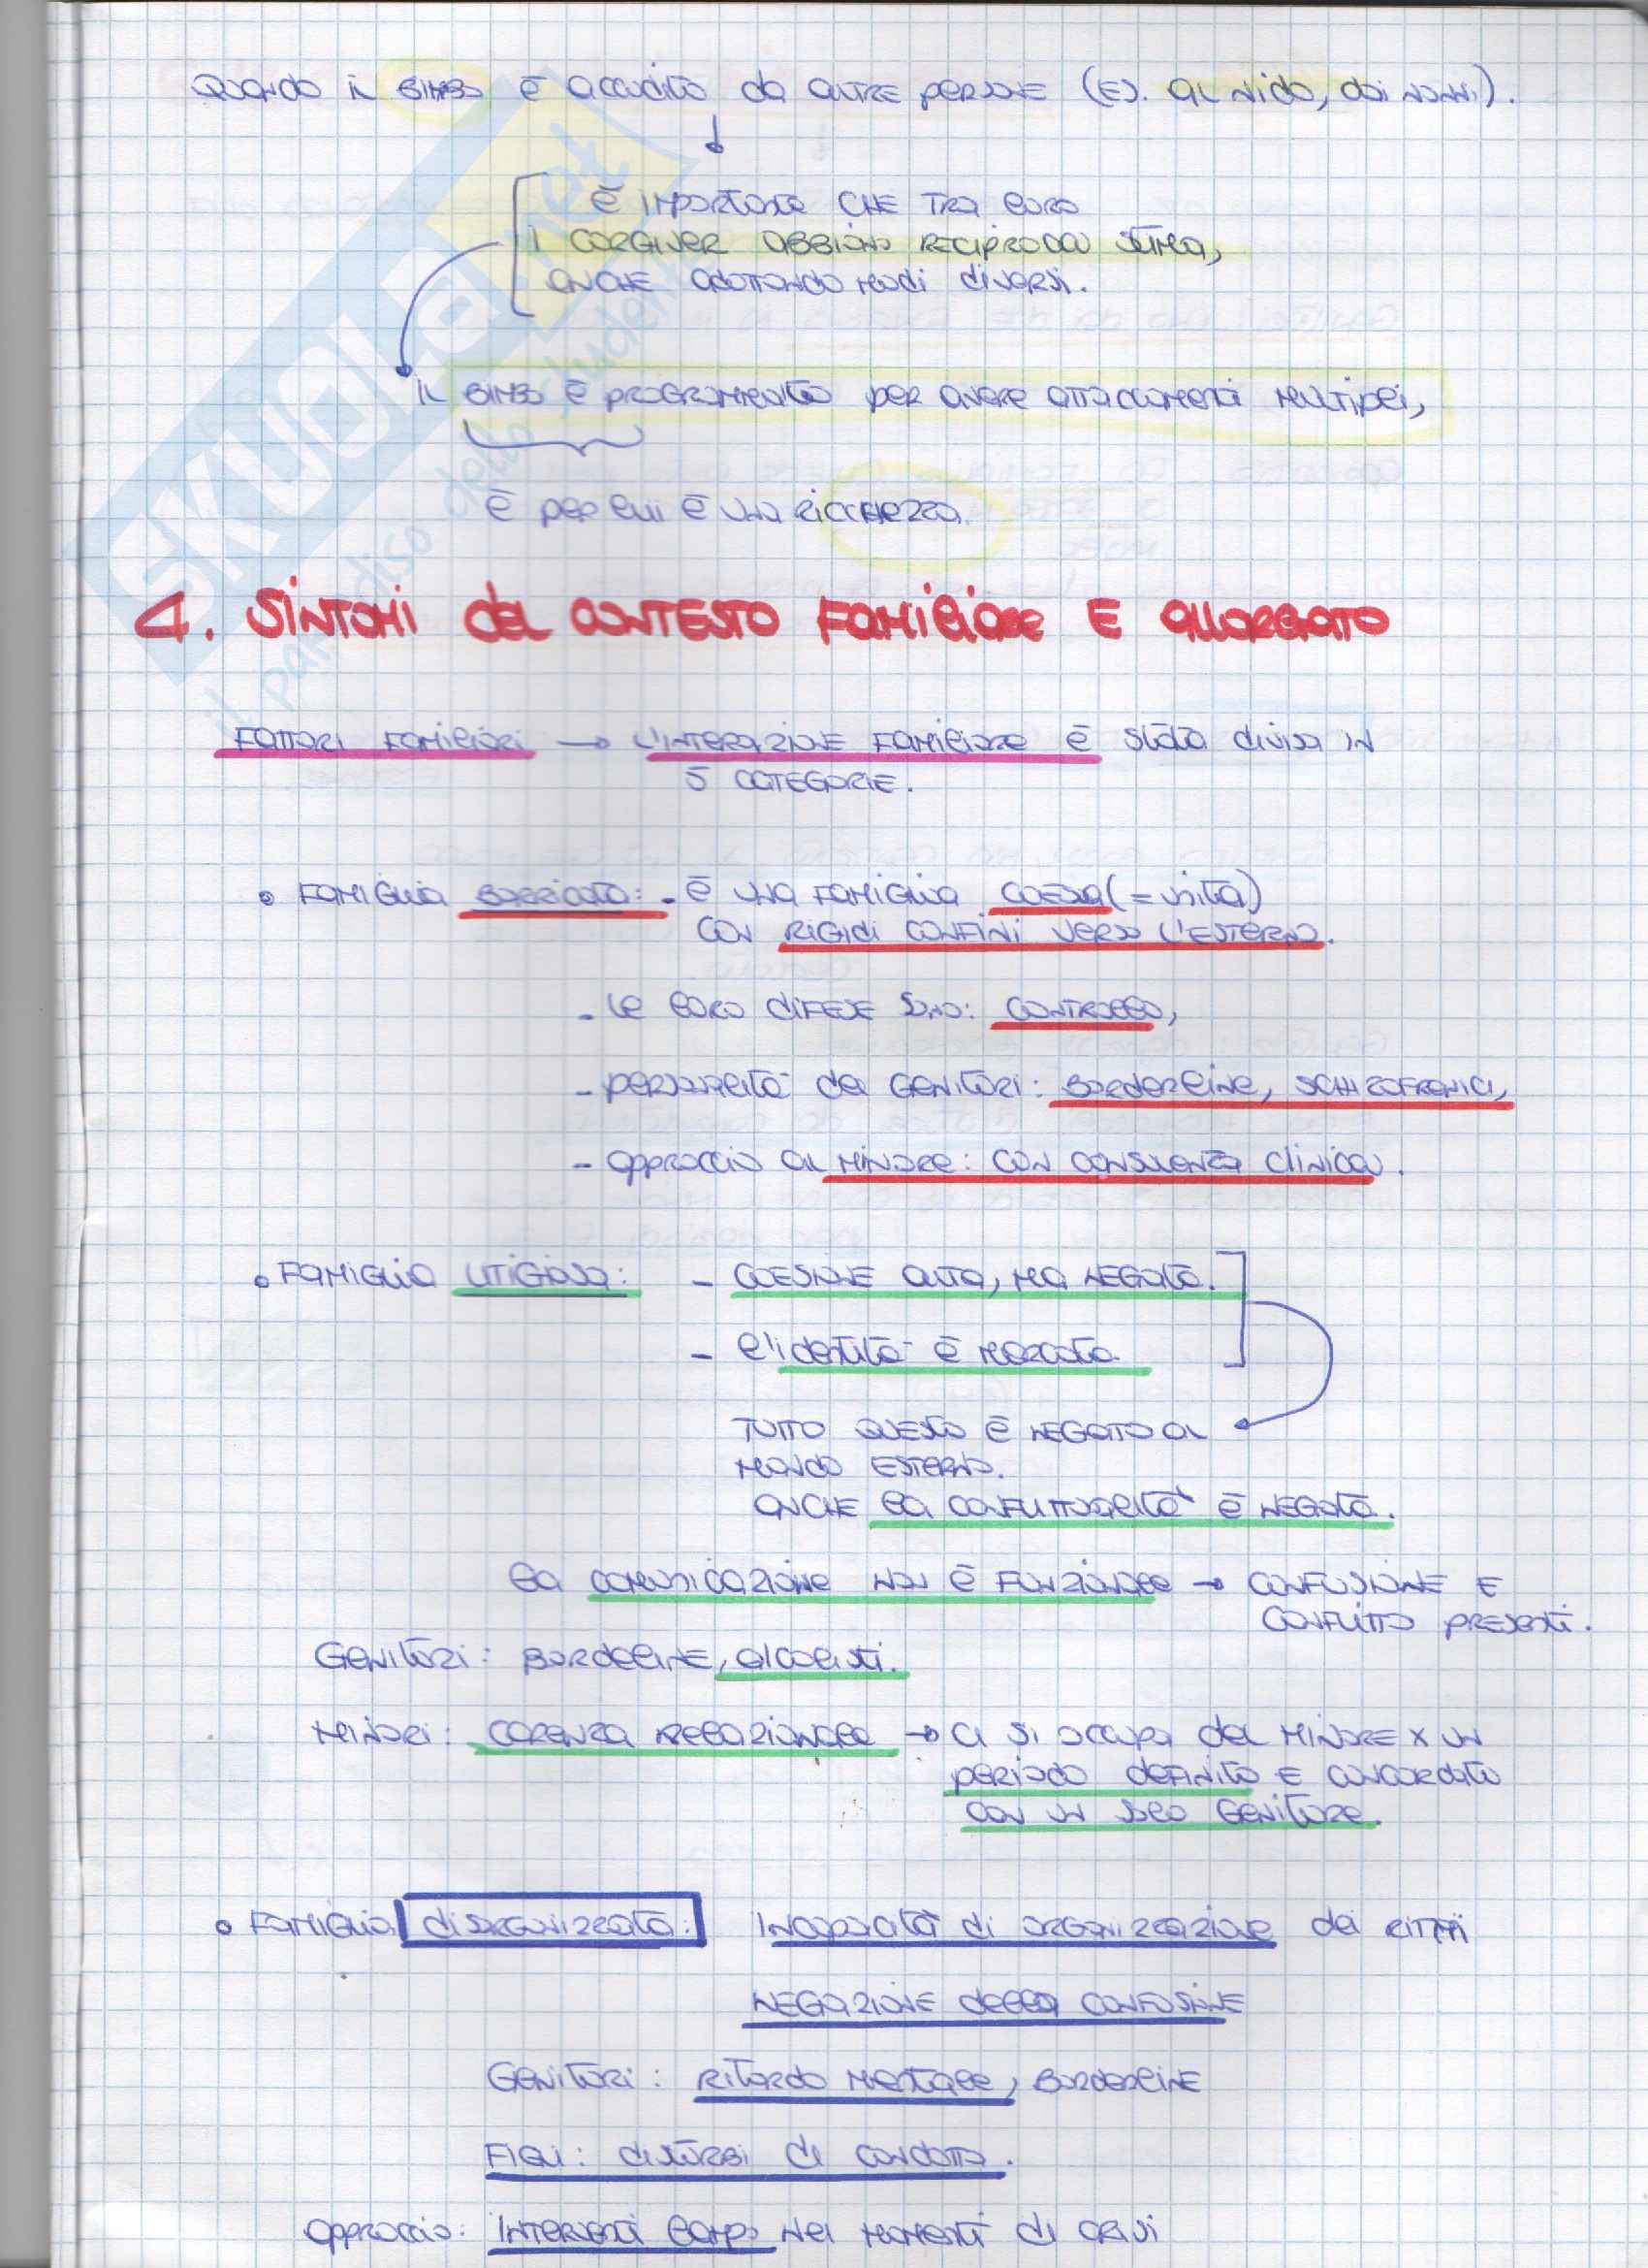 QUANDO IL BIMBO È ACCUDITO DA ALTRE PERSONE (ES. AL NIDO, DAI NONNI).
È IMPORTANTE CHE TRA LORO
I CARGIVER ABBIANO RECIPROCA STIMA,
ANCHE ADOTTANDO MODI DIVERSI.
IL BIMBO È PROGRAMMATO PER AVERE ATTACCAMENTI MULTIPLI,
E PER LUI È UNA RICCHEZZA.
4. SINTOMI DEL CONTESTO FAMILIARE E ALLARGATO
FATTORI FAMILIARI → L'INTERAZIONE FAMILIARE È STATA DIVISA IN
5 CATEGORIE.
• FAMIGLIA BARRICATA: - È UNA FAMIGLIA COESA (= UNITA)
CON RIGIDI CONFINI VERSO L'ESTERNO.
- LE LORO DIFESE SONO: CONTROLLO,
- PERSONALITÀ DEI GENITORI: BORDERLINE, SCHIZOFRENICI,
- APPROCCIO AL MINORE: CON CONSULENZA CLINICA.
• FAMIGLIA LITIGIOSA: - COESIONE ALTA, MA NEGATA.
- L'IDENTITÀ È MARCATA.
TUTTO QUESTO È NEGATO AL
MONDO ESTERNO.
ANCHE LA CONFLITTUALITÀ È NEGATA.
LA COMUNICAZIONE NON È FUNZIONALE → CONFUSIONE E
CONFLITTO PRESENTI.
GENITORI: BORDELINE, ALCOLISTI.
MINORI: CARENZA RELAZIONALE → CI SI OCCUPA DEL MINORE X UN
PERIODO DEFINITO E CONCORDATO
CON UN SOLO GENITORE.
• FAMIGLIA DISORGANIZZATA: INCAPACITÀ DI ORGANIZZAZIONE DEI RITMI
NEGAZIONE DELLA CONFUSIONE
GENITORI: RITARDO MENTALE, BORDERLINE
FIGLI: DISTURBI DI CONDOTTA.
APPROCCIO: INTERVENTI LAMPO NEI MOMENTI DI CRISI
SKUOLA.net
il paradiso dello studente